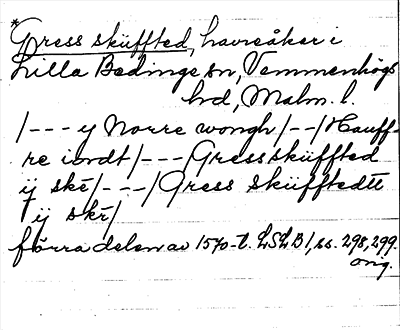 *Gress skiiffted, havreåker i
Lilla Bedinge sn, Vemmenhögs
hd, Malm. l.
/--- ÿ Norre wongh/--/Hauff-
re iordt/---/Gressskiiffted
ÿ skē/---/Gress skiifftedtt
ÿ skr̄/
förra delen av 1570-t. LSLB1, ss. 298, 299.
orig.